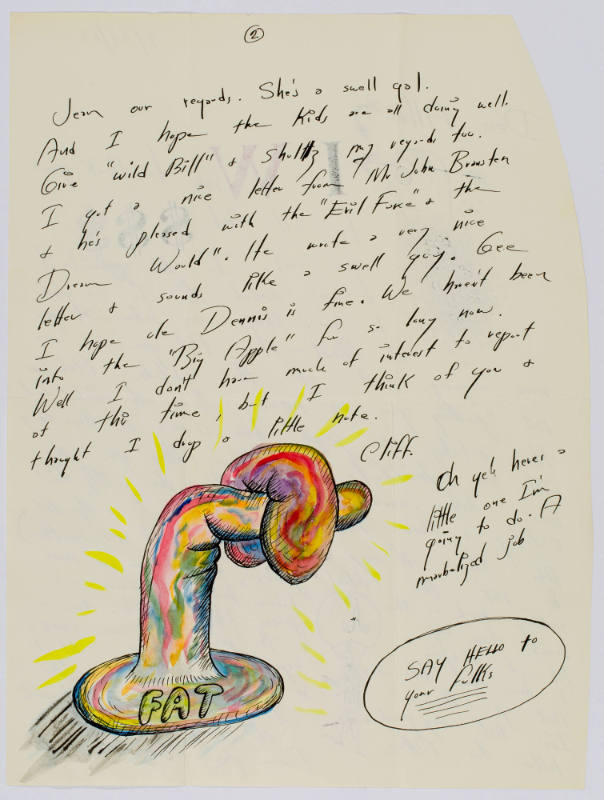 2
Jean our regards. She's a swell gal.
And I hope the Kids are all doing well.
Give "wild Bill" & Shultz my regards too.
I got a nice letter from Mr John Bransten
& he's pleased with the "Evil Force" & the
Dream Would". He wrote a very nice
letter & sounds like a swell guy. Gee
I hope ole Dennis is fine. We haven't been
into the "Big Apple" for so long now.
Well I don't have much of interest to report
at this time, but I think of you &
thought I drop a little note.
Cliff.
Oh yeh heres a
little one I'm
going to do. A
marbalized job
SAY HELLO to
your folks
FAT